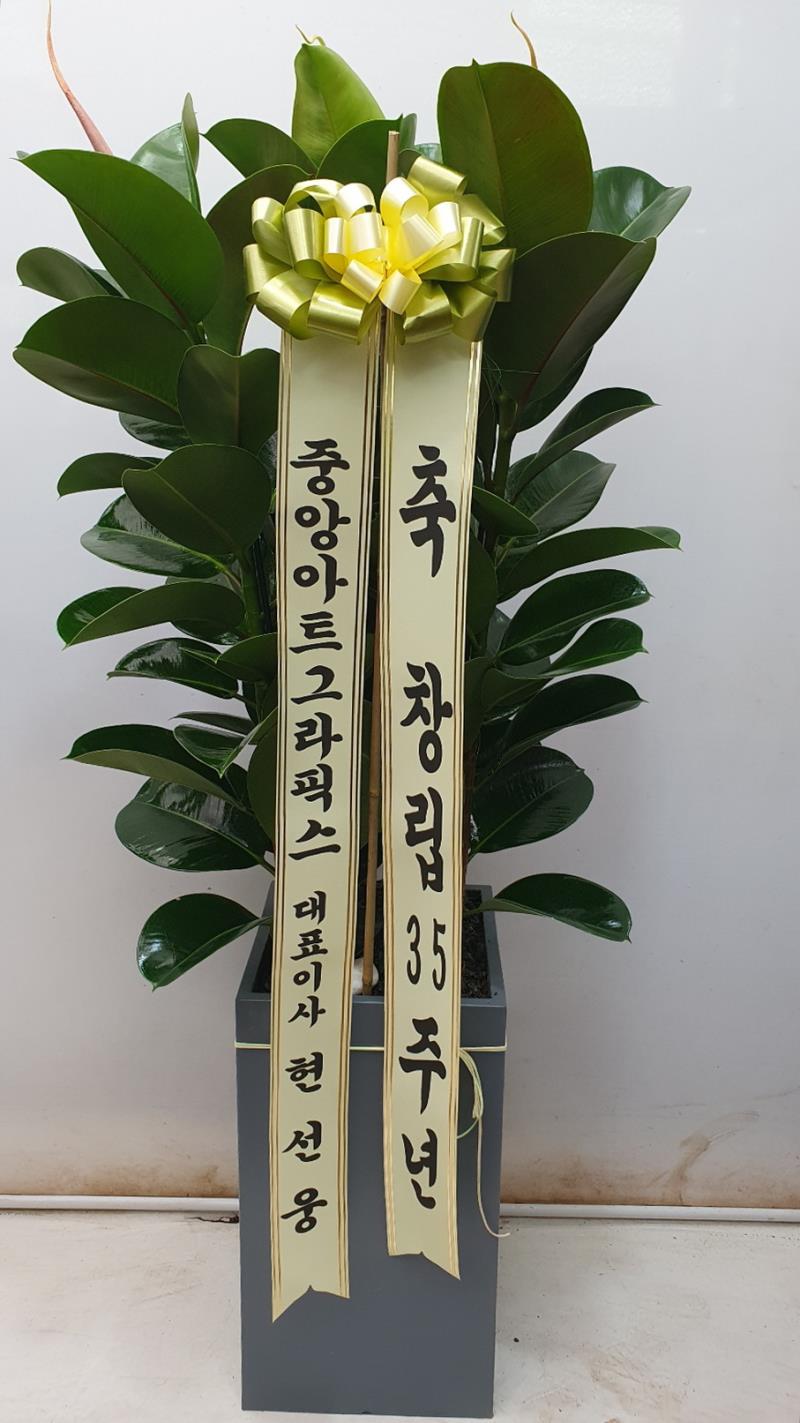 축 창립 35 주년
중앙아트그라픽스 대표이사 현 선 웅